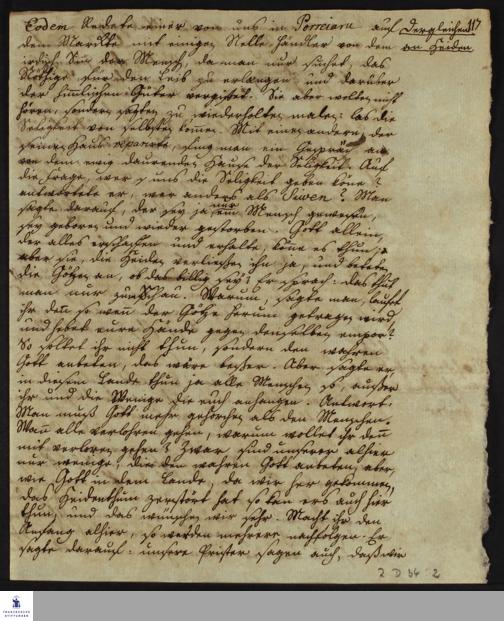 Eodem Redete einer von uns in Porreiaru auf dergleichen 117
dem Marckte mit einigen Nelle händler von dem an Heiden
irdisch Sinn der Menschen, da man nur suchet, das
Nöthige für den Leib zu erlangen und darüber
der himlischen Güter vergißet. Sie aber wolten nicht
hören, sondern sagten zu wiederholten malen: laß die
Seligkeit von selbsten komen. Mit einem andern, der
seiner Hauß reparirte, fing man ein Gespräch an
von dem ewig daurenden Hause der Seligkeit. Auf
die Frage, wer uns die Seligkeit geben köne?
antwortete er, wer anders als Siwen? Man
sagte darauf, der sey ja nur ein Mensch gewesen,
sey geboren und wieder gestorben. Gott allein,
der alles erschaffen und erhalte, köne es thun, ja
aber sie, die Heiden verließen ihn ja, und beteten
die Götzen an, ob das billig sey? Er sprach: das thut
man nur zum Schau. Warum, sagte man, laufet
ihr denn so wen der Götze herum getragen wird
und hebet eure Hände gegen denselben empor?
So soltet ihr nicht thun, sondern den wahren
Gott anbeten, das wäre beßer. Aber sagte er,
in diesem Lande thun ja alle Menschen so, außer
ihr und die Wenige die euch anhangen. Antwort.
Man muß Gott mehr gehorchen als den Menschen.
Wann alle verlohren gehen, warum wollet ihr denn
mit verloren gehen? Zwar sind unserer alhier
nur wenige, die den wahren Gott anbeten, aber,
wie Gott in dem Lande, da wir her gekommen,
das Heidenthum zerstört hat so kan ers auch hier
thun, und das wünschen wir sehr. Macht ihr den
Anfang alhier, so werden mehrere nachfolgen. Er
sagte darauf: unsere Prister sagen auch, daß wir
2 D 34 : 2
FRANCKESCHE
STIFTUNGEN